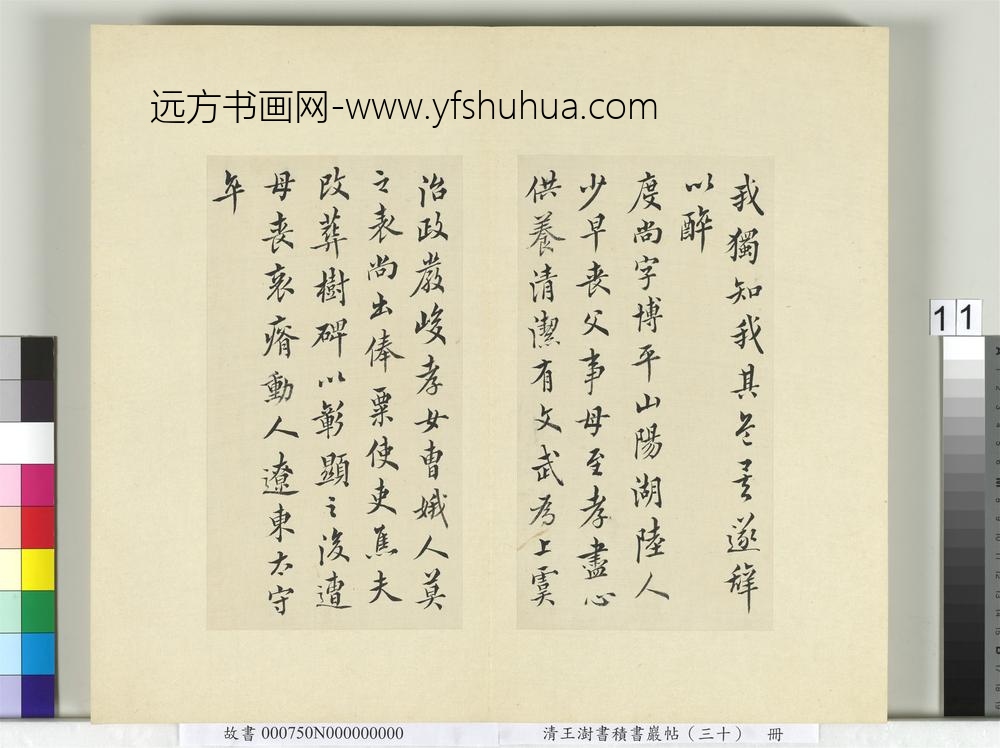 远方书画网-www.yfshuhua.com
我獨知我其無妄遂辭
以醉
度尚字博平山陽湖陸人
少早喪父事母至孝盡心
供養清潔有文武為上虞
治政嚴峻孝女曹娥人莫
之表尚出俸粟使吏焦夫
改葬樹碑以彰顯之後遭
母喪哀瘠動人遼東太守
卒
11
故書 000750N000000000
清王澍書積書巖帖（三十） 冊